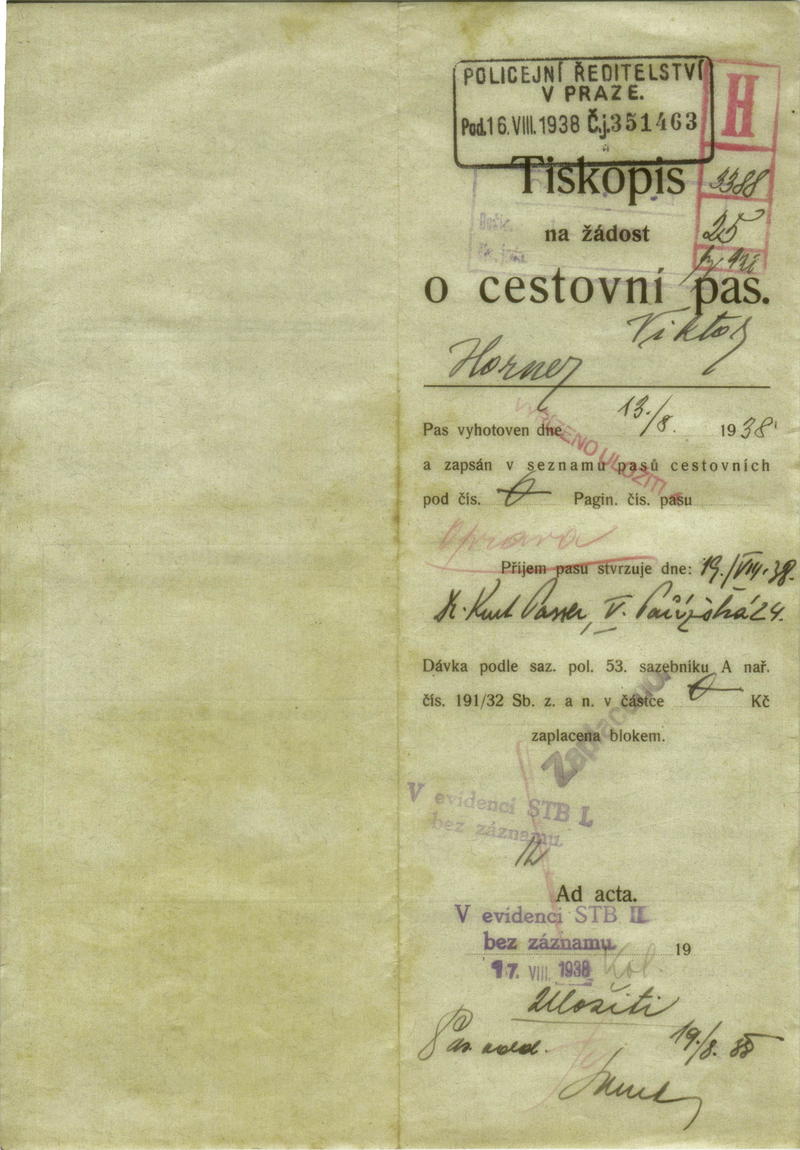 POLICEJNÍ ŘEDITELSTVÍ
V PRAZE.
Pod. 16. VIII. 1938 Č.j. 351463
H
Tiskopis
3388
na žádost
25
o cestovní pas.
Viktor
Horner
Pas vyhotoven dne 13./8. 1938
VYŘÍZENO ULOŽITI
a zapsán v seznamu pasů cestovních
pod čís. Pagin. čís. pasu
Oprava
Příjem pasu stvrzuje dne: 19./VIII.38.
Dr. Kurt Passer, V. Pařížská 24.
Dávka podle saz. pol. 53. sazebníku A nař.
čís. 191/32 Sb. z. a n. v částce 0 Kč
Zaplaceno
zaplacena blokem.
V evidenci STB I.
bez záznamu.
Ad acta.
V evidenci STB II
bez záznamu
19
17. VIII. 1938
Uložiti
19./8. 38